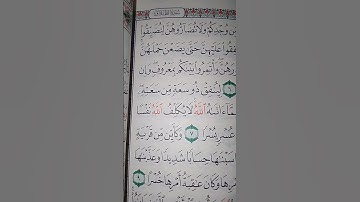 مِّن وُجْدِكُمْ وَلَا تُضَآرُّوهُنَّ لِتُضَيِّقُوا۟
فِقُوا۟ عَلَيْهِنَّ حَتَّىٰ يَضَعْنَ حَمْلَهُنَّ
ورَهُنَّ وَأْتَمِرُوا۟ بَيْنَكُم بِمَعْرُوفٍ وَإِن
٦ لِيُنفِقْ ذُو سَعَةٍ مِّن سَعَتِهِ
مَّآ ءَاتَىٰهُ ٱللَّهُ لَا يُكَلِّفُ ٱللَّهُ نَفْسًا
عُسْرٍ يُسْرًا ٧ وَكَأَيِّن مِّن قَرْيَةٍ
سَبْنَٰهَا حِسَابًا شَدِيدًا وَعَذَّبْنَٰهَا
مْرِهَا وَكَانَ عَٰقِبَةُ أَمْرِهَا خُسْرًا ٩